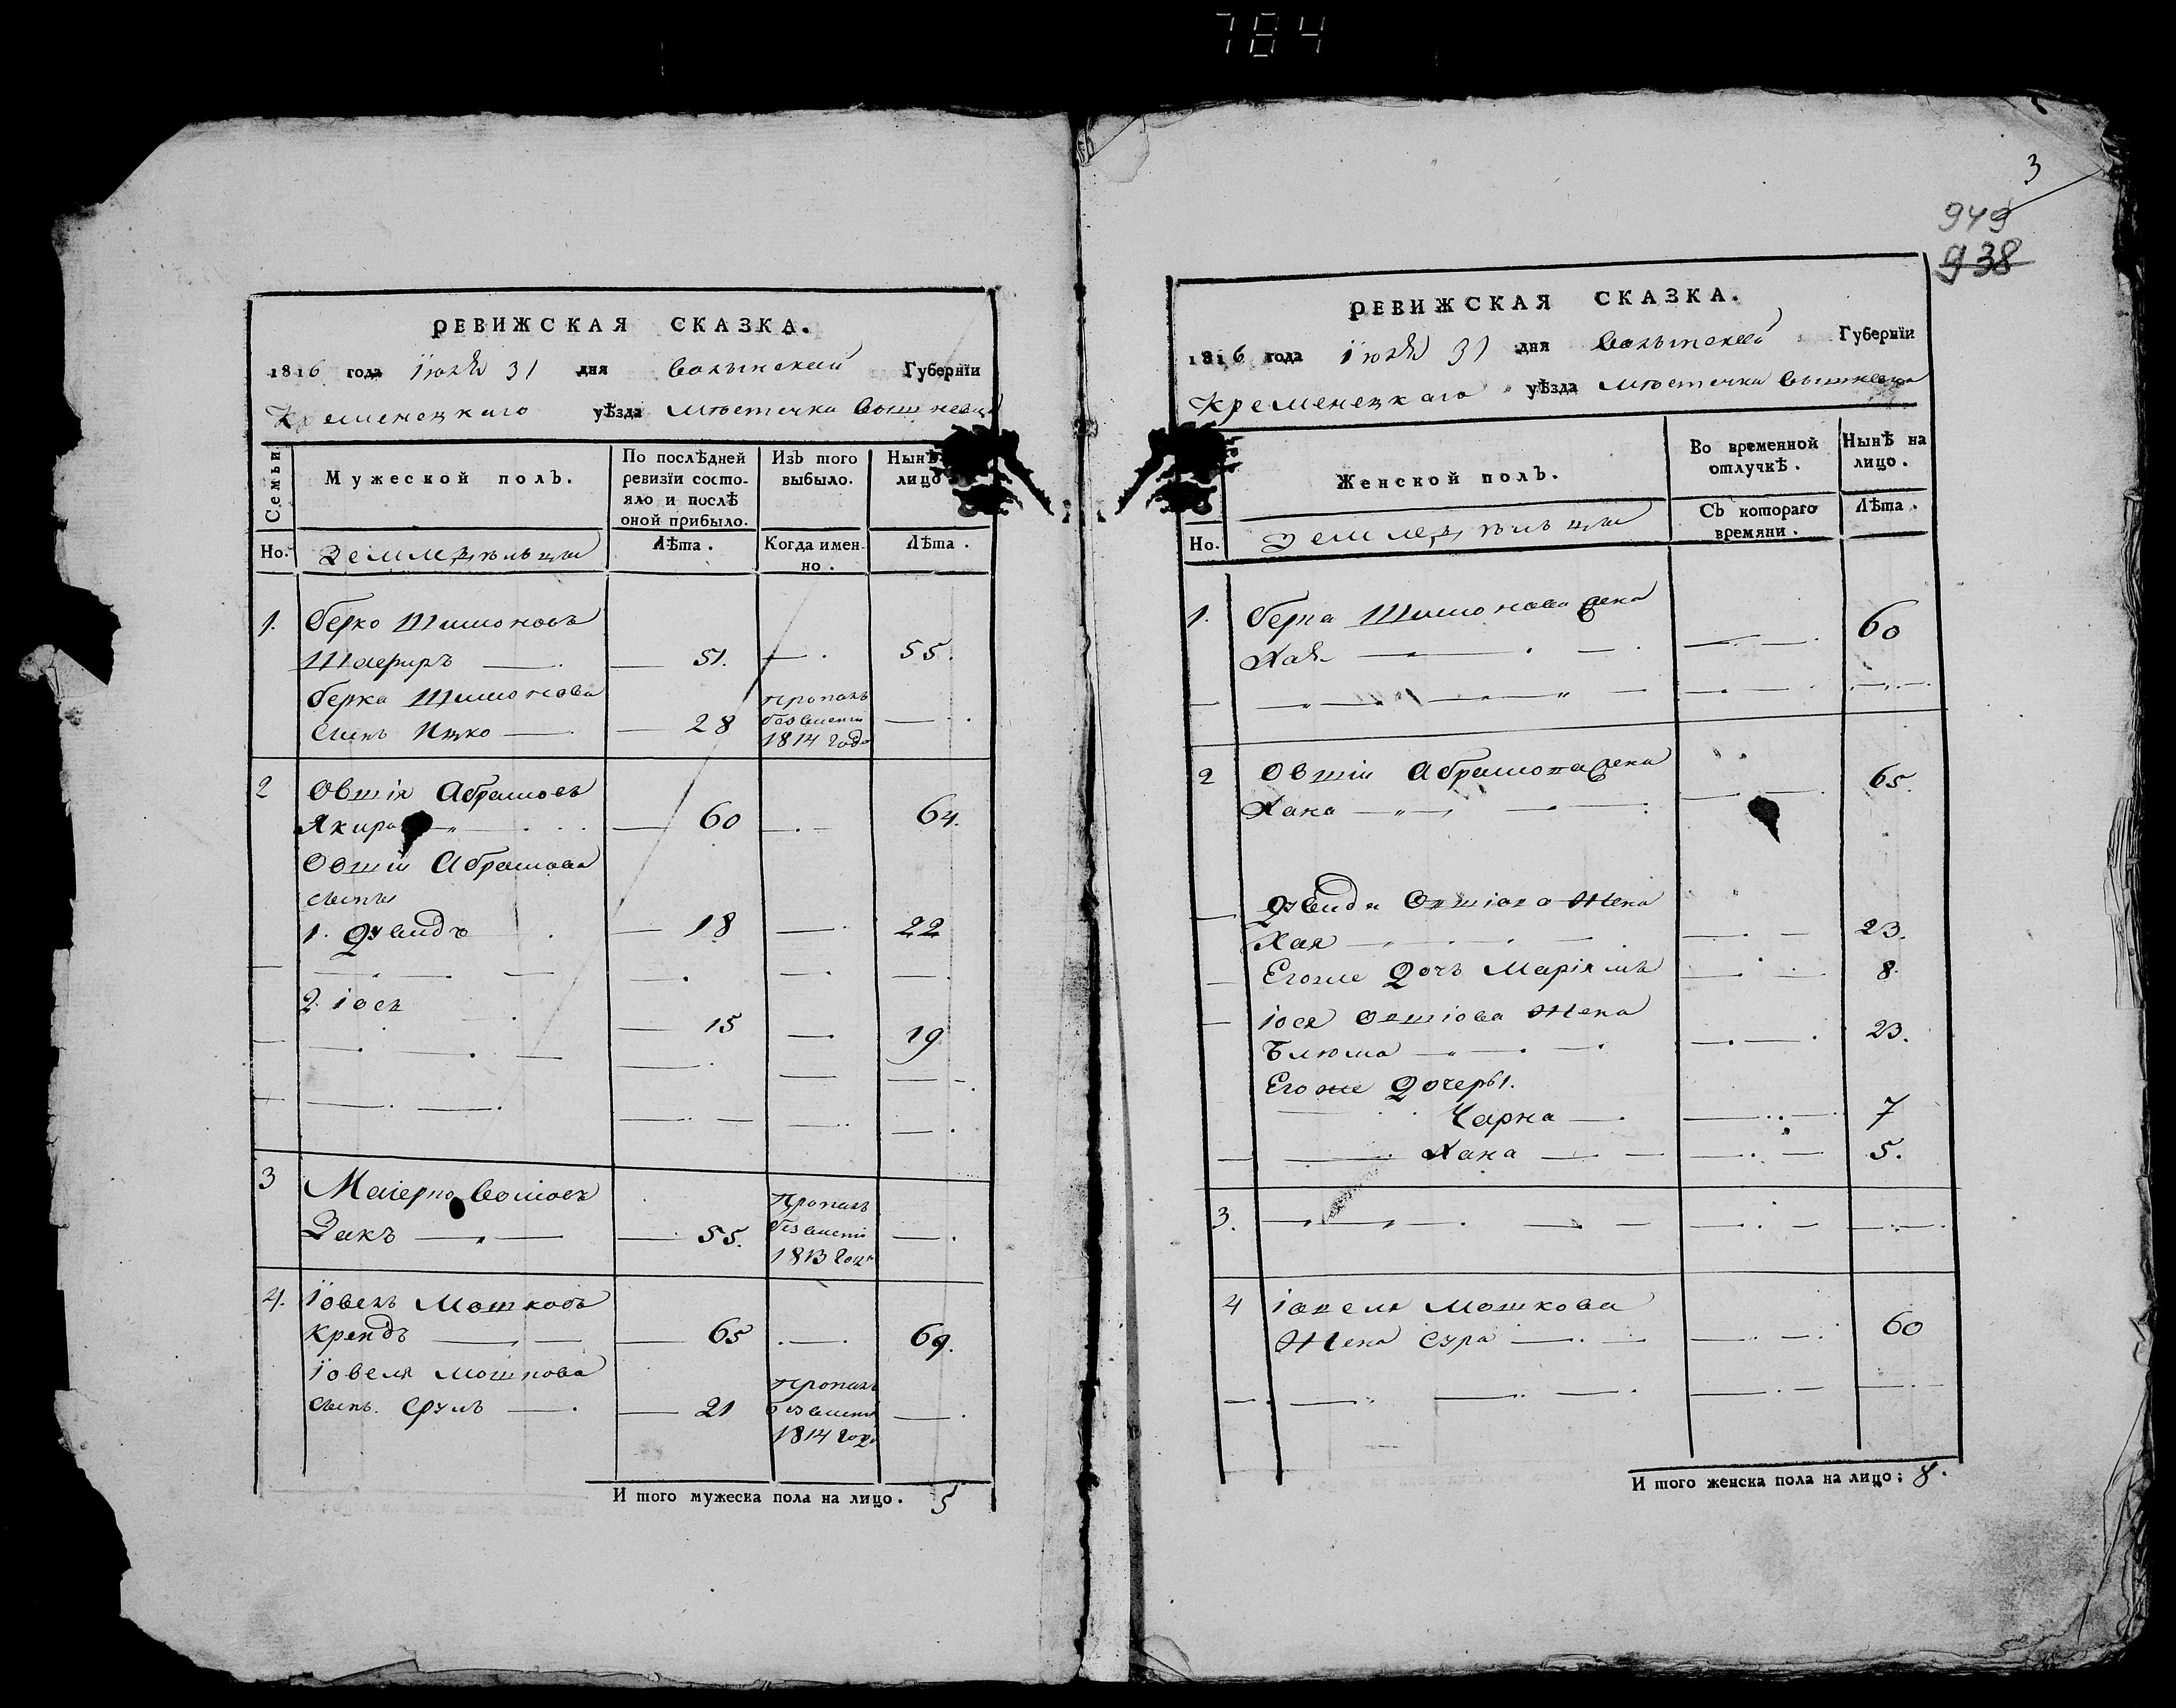 784
РЕВИЖСКАЯ СКАЗКА.
1816 года Іюля 31 дня Волынской Губерніи
Кременецкаго уѣзда мѣстечка Вишневца
Семьи.
Мужеской полъ.
По послѣдней ревизіи состояло и послѣ оной прибыло.
Изъ того выбыло.
Нынѣ лицо
Но. Земледѣльцы Лѣта. Когда именно. Лѣта.
1. Берко Шимоновъ
Шафиръ — 51. — 55.
Берка Шимонова пропалъ
сынъ Ицко — 28 безвести —
1814 года
2 Овшія Абрамовъ
Якира — 60 — 64.
Овшіи Абрамова
сыны
1. Дувидъ — 18 — 22
2. Іося — 15 — 19
3 Маіерко Вольовъ Пропалъ
Закъ — 55. безвести —
1813 года
4. Іовель Мошковъ
Крендъ — 65 — 69.
Іовеля Мошкова пропалъ
сынъ Сруль — 21 безвести —
1814 года
И того мужеска пола на лицо. 5
3
949
938
РЕВИЖСКАЯ СКАЗКА.
1816 года Іюля 31 дня Волынской Губерніи
Кременецкаго уѣзда мѣстечка Вишневца
Женской полъ.
Во временной отлучкѣ.
Нынѣ на лицо.
Но. Земледѣльцы Съ котораго времяни. Лѣта.
1. Берка Шимонова жена
Хая — 60
2 Овшіи Абрамова жена
Хана — 65.
Дувида Овшіова Жена
Хая — 23.
Егоже Дочь Маріямъ — 8.
Іося Овшіова Жена
Блюма — 23.
Егоже Дочеры.
Чарна — 7
Хана — 5.
3.
4 Іовеля Мошкова
Жена Сура — 60
И того женска пола на лицо: 8.